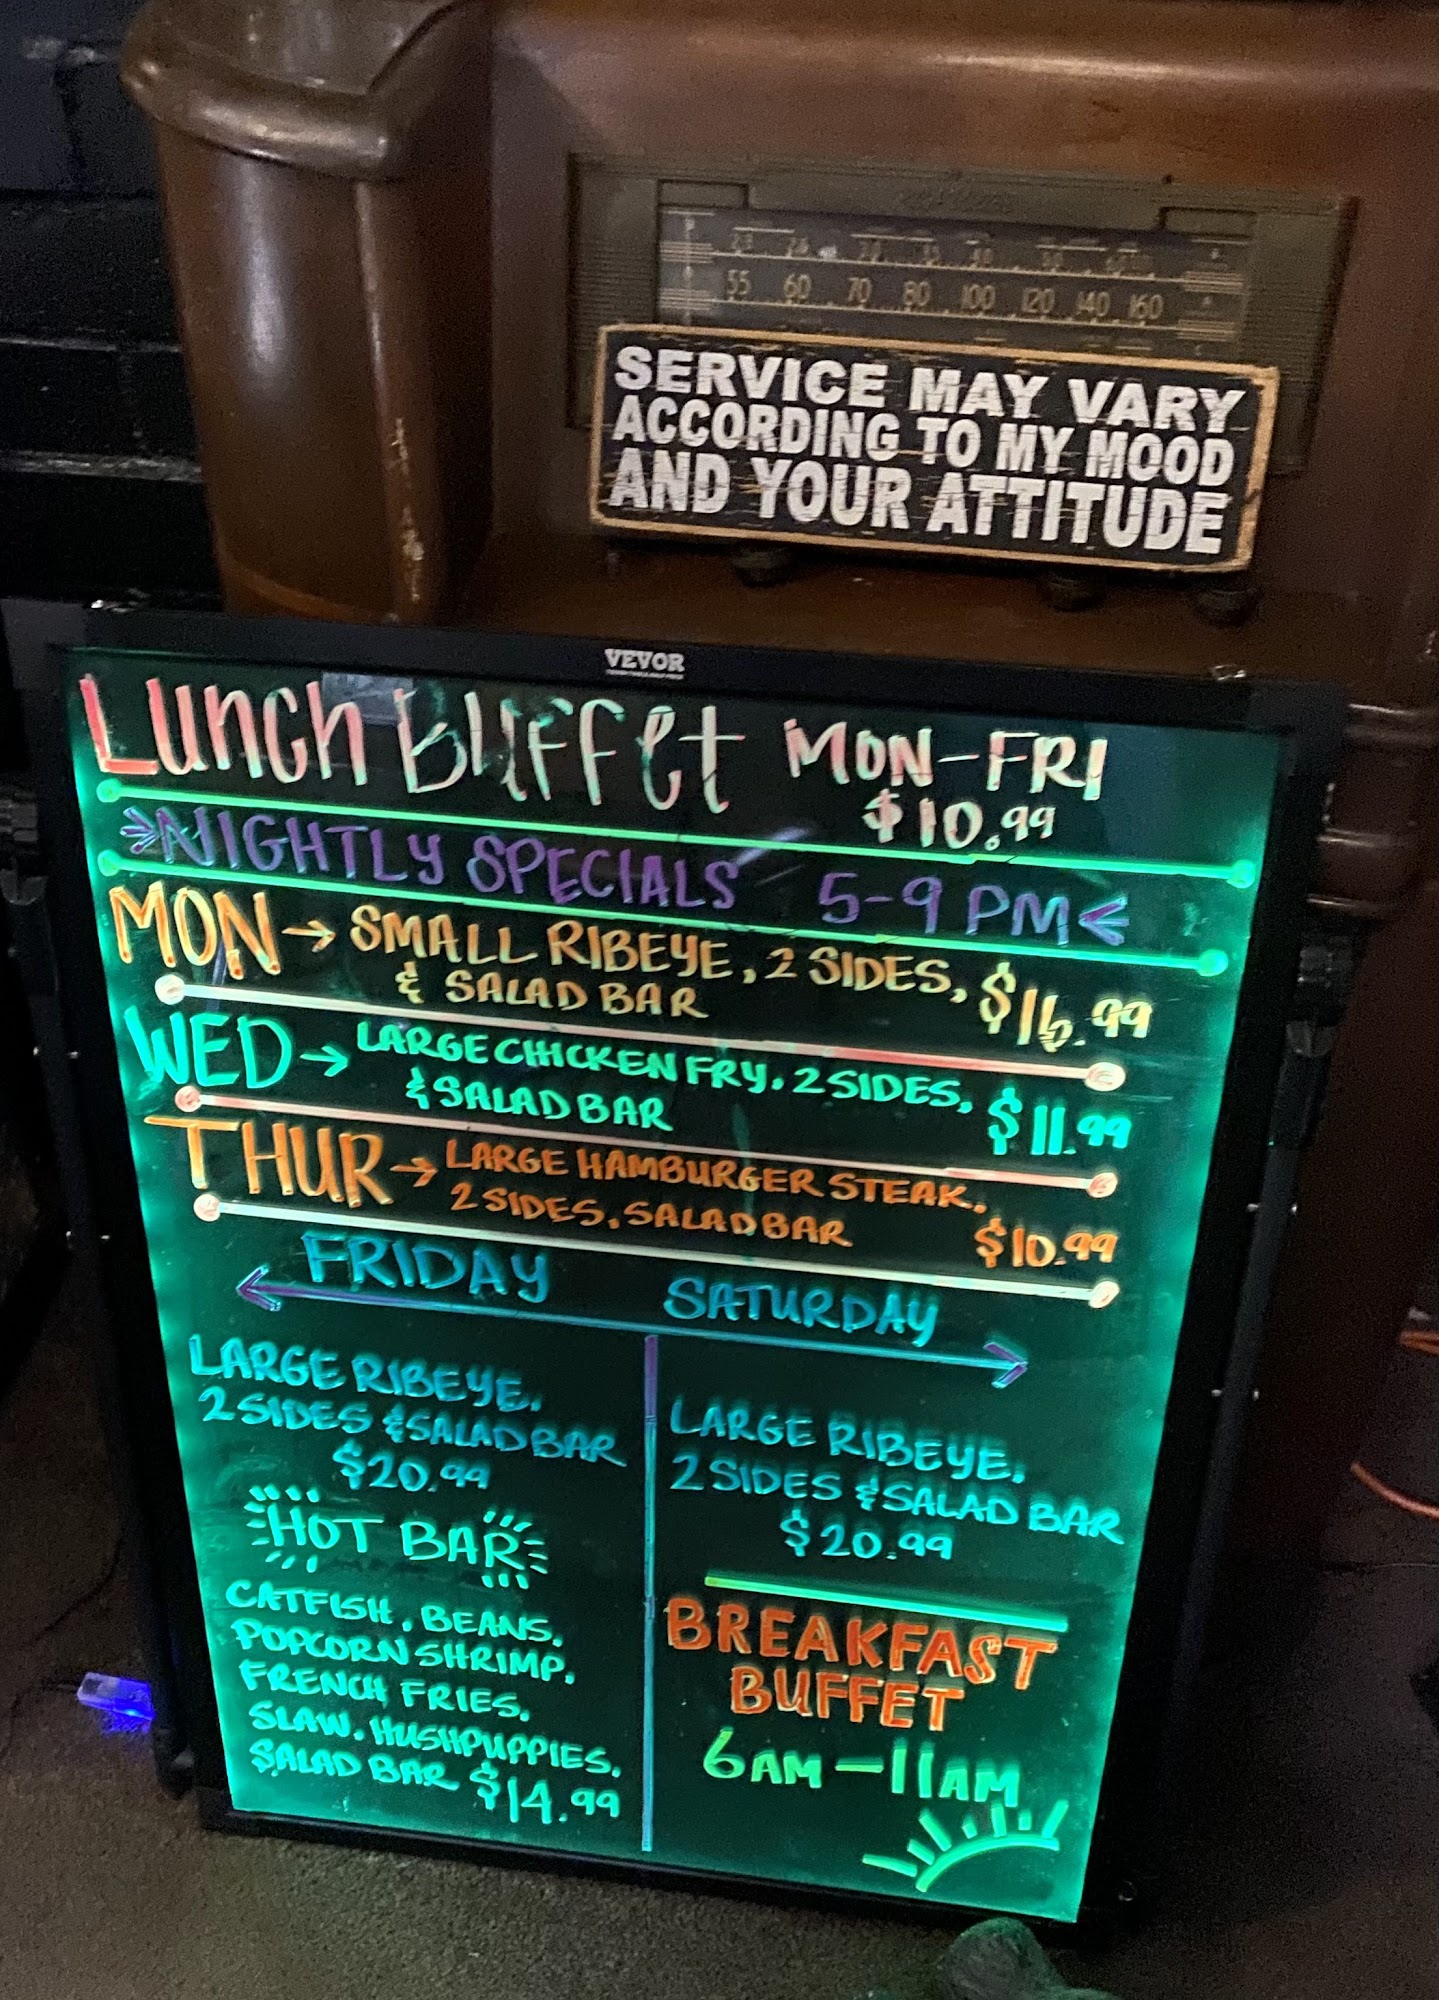 55 60 70 80 100 120 140 160
SERVICE MAY VARY
ACCORDING TO MY MOOD
AND YOUR ATTITUDE
VEVOR
Lunch Buffet MON-FRI
$10.99
NIGHTLY SPECIALS 5-9 PM
MON → SMALL RIBEYE, 2 SIDES,
& SALAD BAR $16.99
WED → LARGE CHICKEN FRY, 2 SIDES,
& SALAD BAR $11.99
THUR → LARGE HAMBURGER STEAK,
2 SIDES, SALAD BAR $10.99
FRIDAY SATURDAY
LARGE RIBEYE,
2 SIDES & SALAD BAR
$20.99
HOT BAR
CATFISH, BEANS,
POPCORN SHRIMP,
FRENCH FRIES,
SLAW, HUSHPUPPIES,
SALAD BAR $14.99
LARGE RIBEYE,
2 SIDES & SALAD BAR
$20.99
BREAKFAST
BUFFET
6AM-11AM